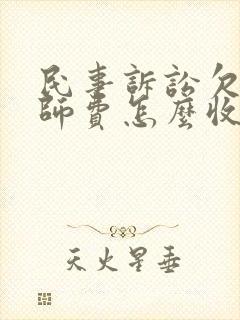 民事訴訟欠
師費怎麼收
天火星垂